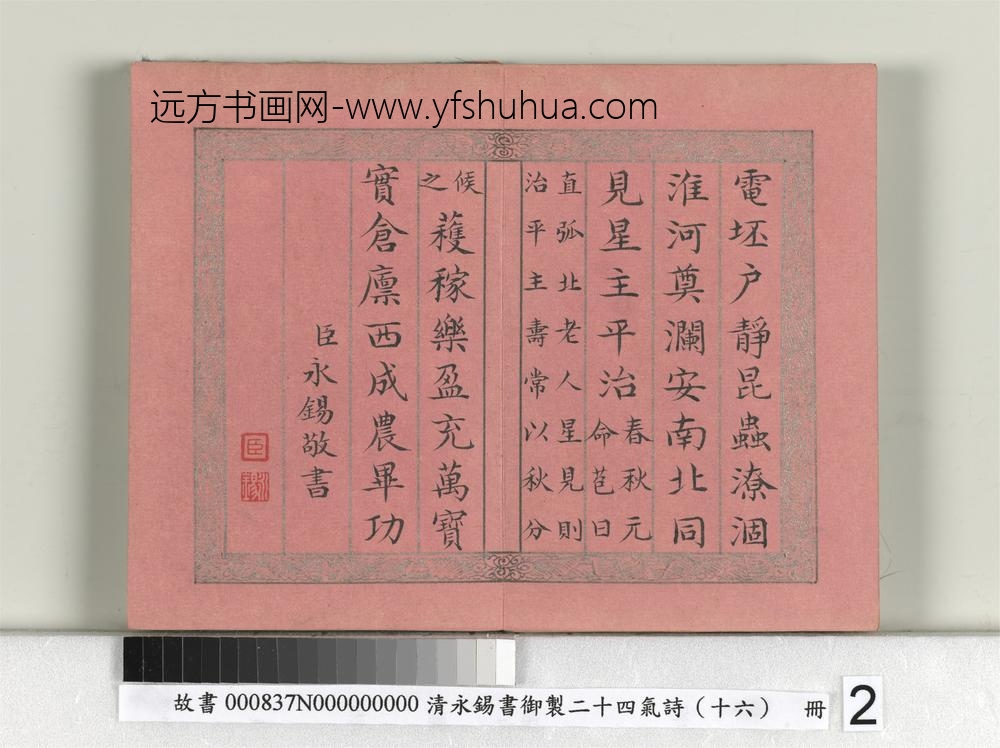 远方书画网-www.yfshuhua.com
電坯户靜昆蟲潦涸
淮河奠瀾安南北同
見星主平治春秋元命苞曰
直弧北老人星見則
治平主壽常以秋分
候之穫稼樂盈充萬寶
實倉廪西成農畢功
臣永錫敬書
臣
永錫
故書 000837N000000000 清永錫書御製二十四氣詩（十六） 冊
2